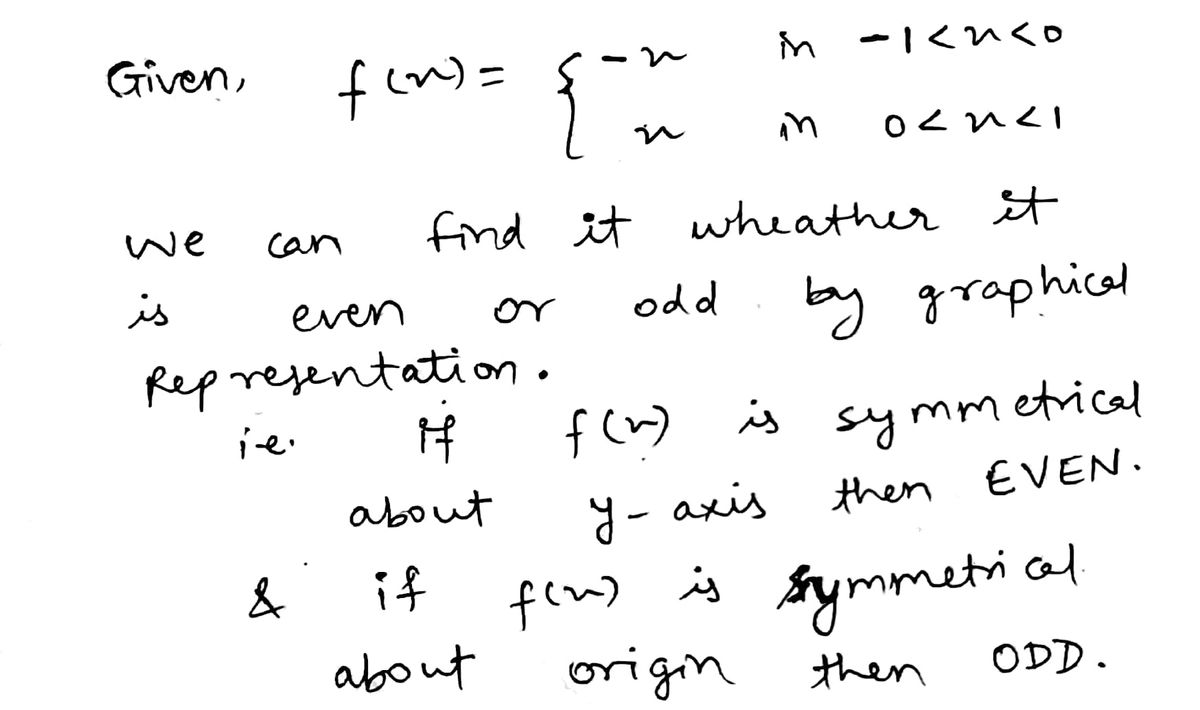 Given, f(x) = { -x in -1<x<0
x in 0<x<1
we can find it wheather it
is even or odd by graphical
Representation.
i.e. if f(x) is symmetrical
about y-axis then EVEN.
& if f(x) is symmetrical
about origin then ODD.